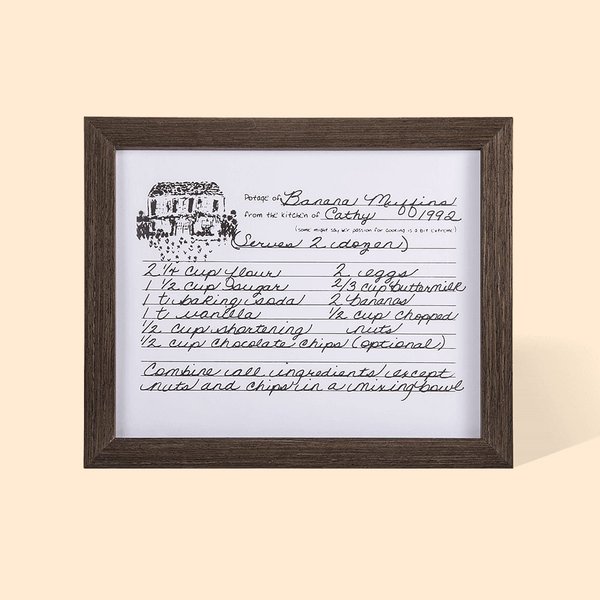 Potage of Banana Muffins
from the kitchen of Cathy 1992
(some might say my passion for cooking is a bit extreme)
(Serves 2 dozen)
2 1/4 cup flour 2 eggs
1 1/2 cup sugar 2/3 cup buttermilk
1 t baking soda 2 bananas
1 t vanilla 1/2 cup chopped
1/2 cup shortening nuts
1/2 cup chocolate chips (optional)
Combine all ingredients except
nuts and chips in a mixing bowl